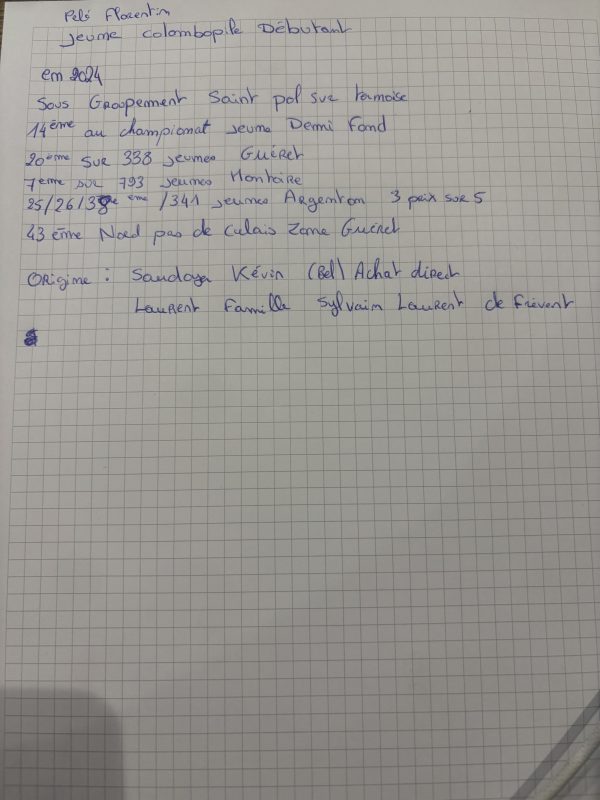 Pelé Florentin
jeune colombopile Débutant
en 2024
Sous Groupement Saint pol sur ternoise
14ème au championat jeune Demi Fond
20ème sur 338 jeunes Guéret
7eme sur 793 jeunes Montoire
25/26/38 eme /341 jeunes Argenton 3 prix sur 5
43 éme Nord pas de Calais Zone Guéret
ORigine : Sandoya Kévin (Bel) Achat direct
Laurent Famille Sylvain Laurent de Frévent